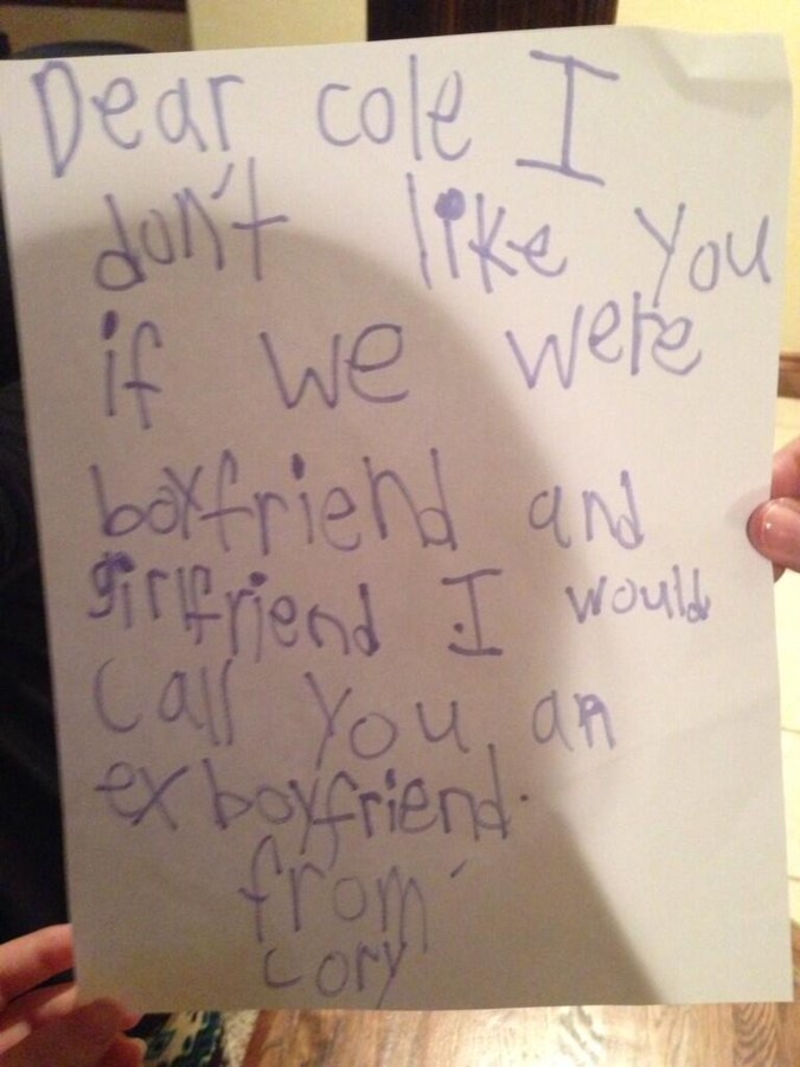 Dear cole I
don't like you
if we were
boyfriend and
girlfriend I would
call you an
ex boyfriend.
from
cory